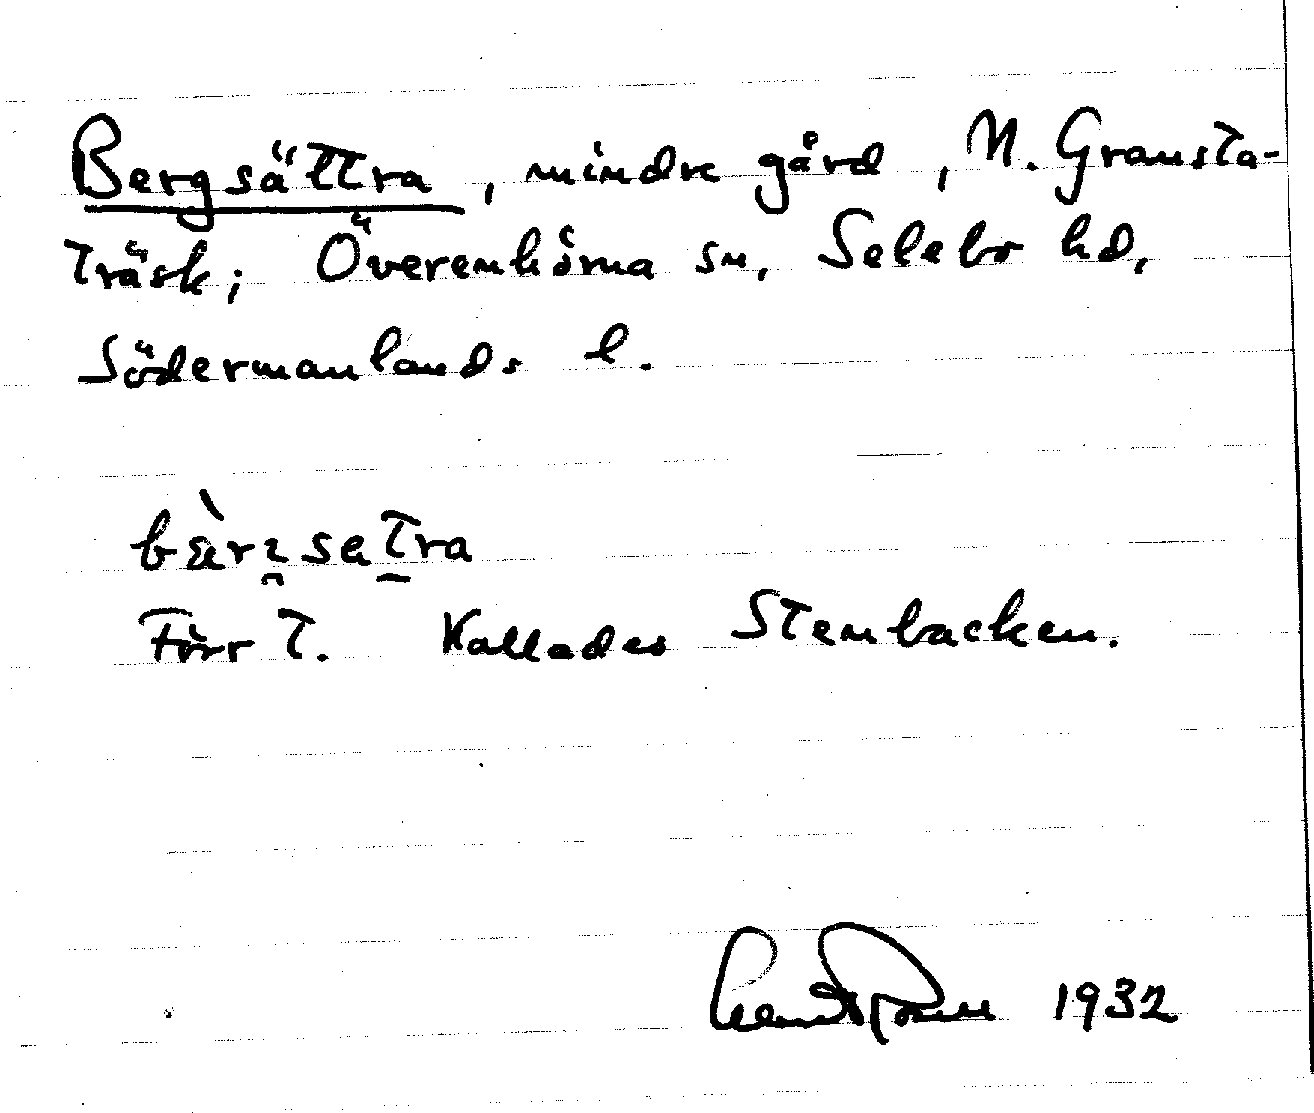 Bergsättra, mindre gård, N. Gransta-
träsk; Överenhörna sn, Selebo hd,
Södermanlands l.
Förr t. Kallades Stenbacken.
1932